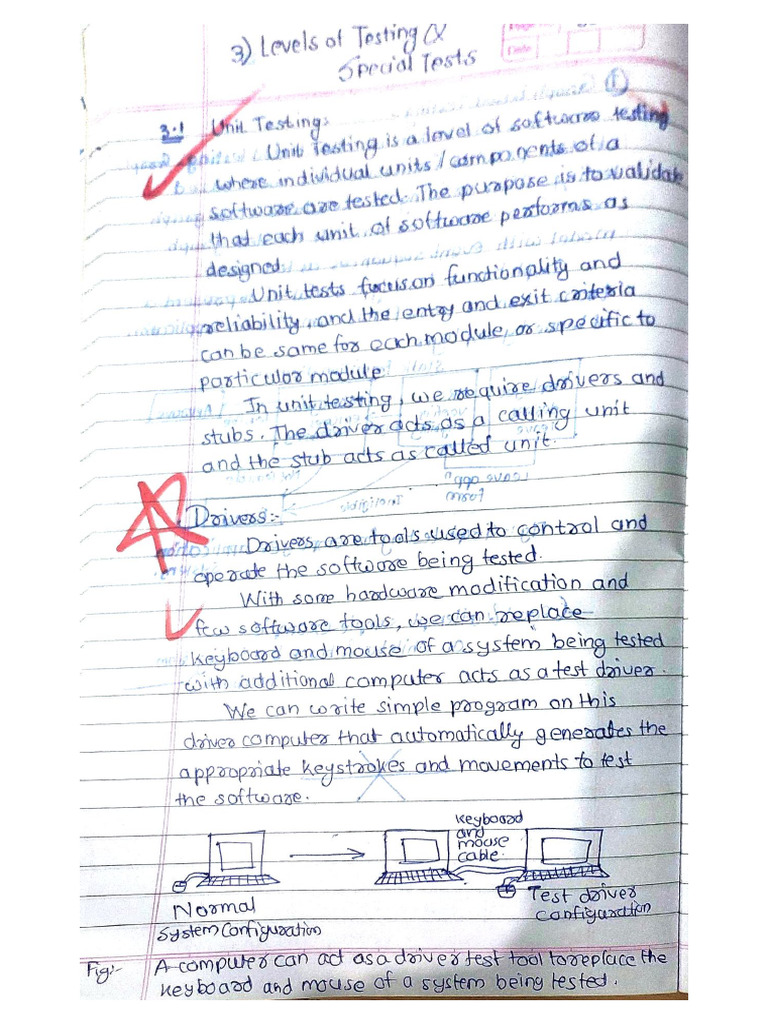 3) Levels of Testing &
Special Tests
1
3.1 Unit Testing:
Unit Testing is a level of software testing
where individual units/components of a
software are tested. The purpose is to validate
that each unit of software performs as
designed.
Unit tests focus on functionality and
reliability, and the entry and exit criteria
can be same for each module, or specific to
particular module
In unit testing, we require drivers and
stubs. The driver acts as a calling unit
and the stub acts as called unit.
Drivers:-
Drivers are tools used to control and
operate the software being tested.
With some hardware modification and
few software tools, we can replace
keyboard and mouse of a system being tested
with additional computer acts as a test driver.
We can write simple program on this
driver computer that automatically generates the
appropriate keystrokes and movements to test
the software.
keyboard
and
mouse
cable.
Normal
System Configuration
Test driver
Configuration
Fig:- A computer can act as a driver test tool to replace the
keyboard and mouse of a system being tested.